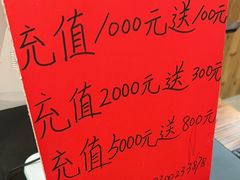 充值1000元送100元
充值2000元送300元
充值5000元送800元